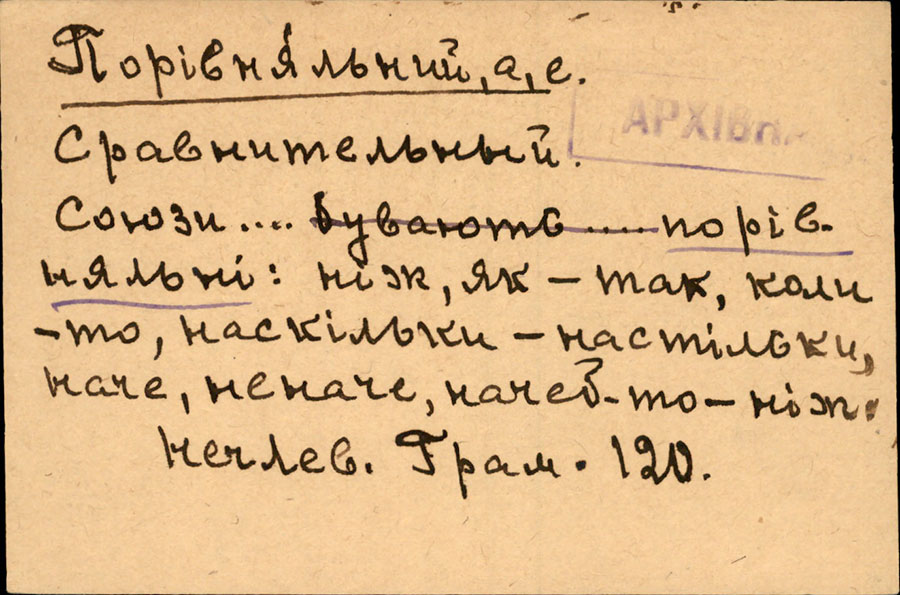 Порівня́льний, а, е.
АРХІВ
Сравнительный.
Союзи .... бувають ..... порів-
няльні: ніж, як – так, коли
-то, наскільки – настільки,
наче, неначе, начеб-то – ніж.
НечЛев. Грам. 120.